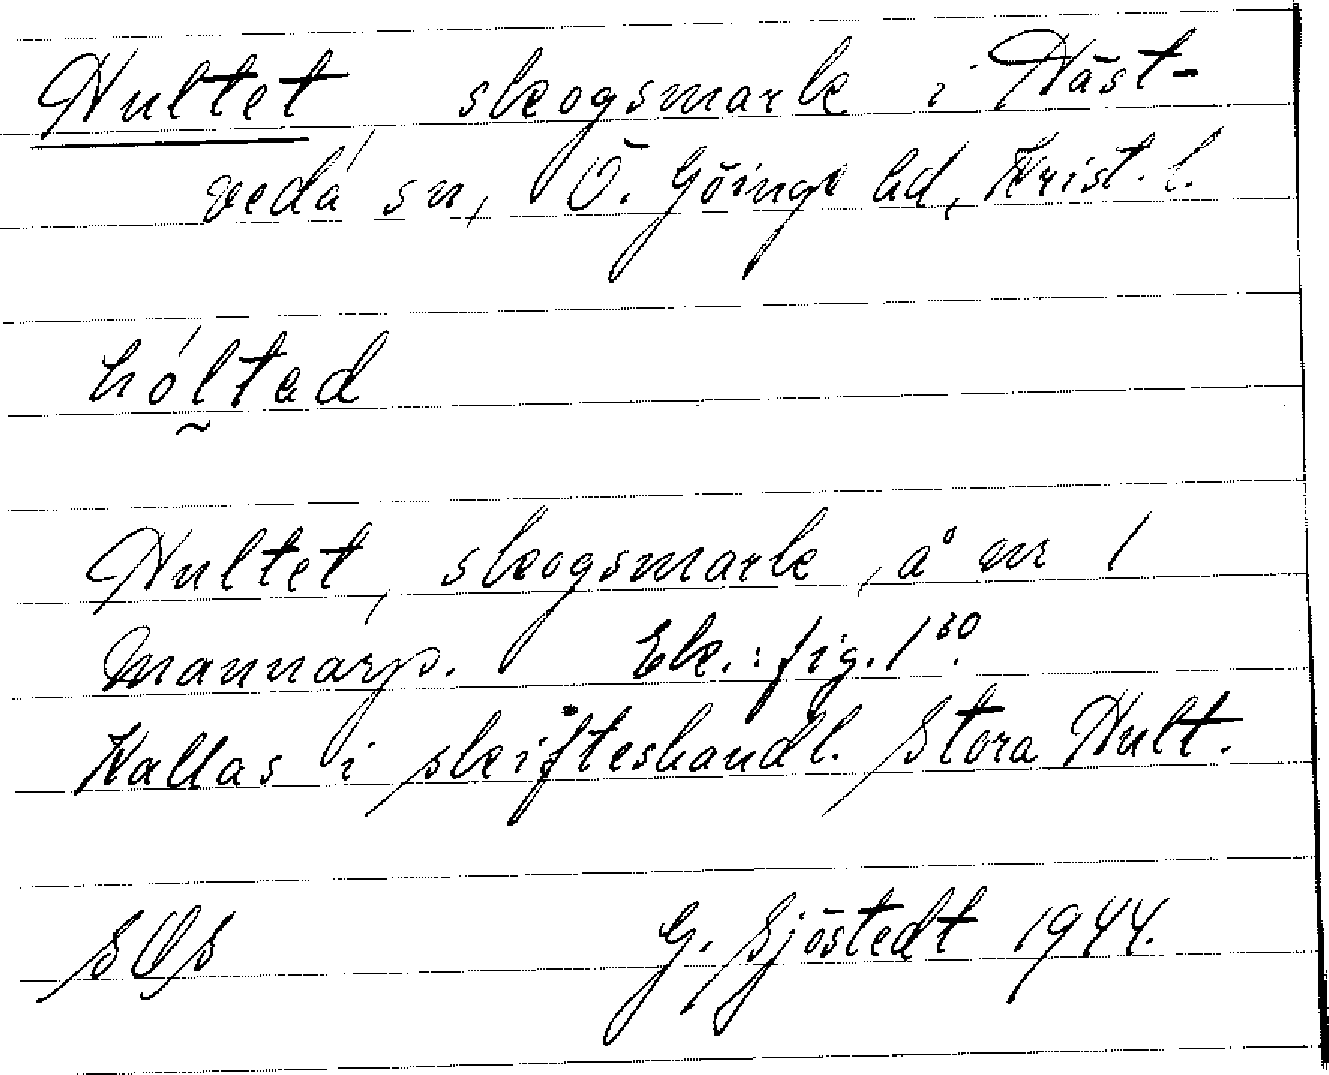 Hultet skogsmark i Häst-
veda sn, Ö. Göinge hd, Krist. l.
hóltad
Hultet, skogsmark, å nr 1
Mannarp. Ek.: fig. 1³⁰.
Kallas i skifteshandl. Stora Hult.
SOS G. Sjöstedt 1944.